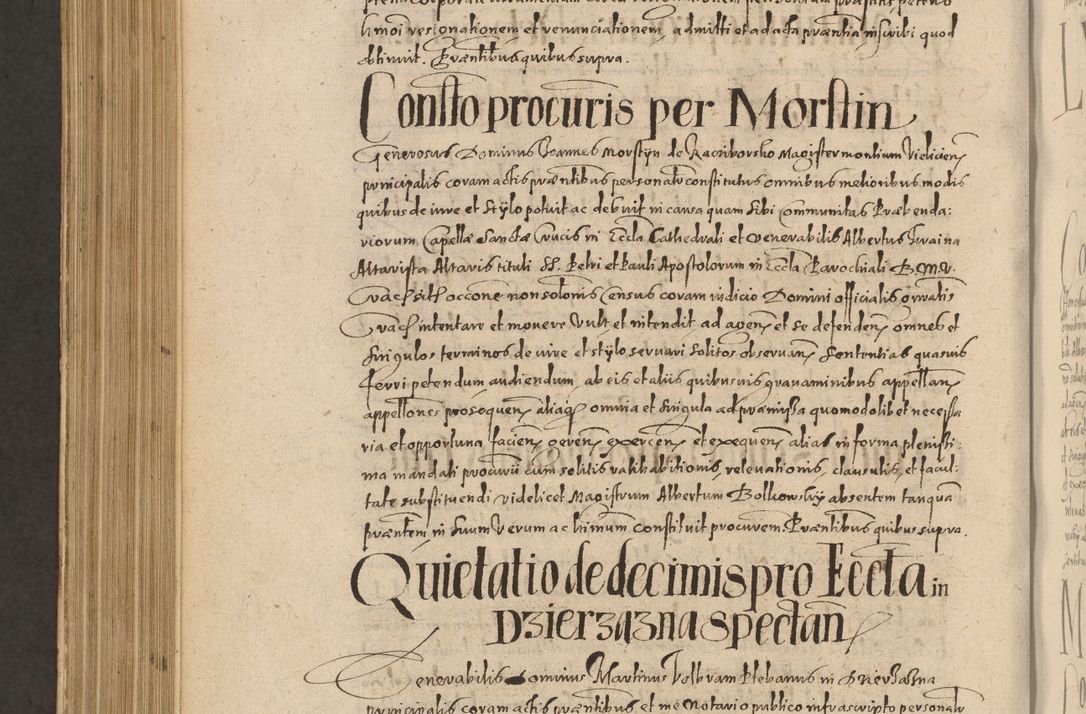 limoi resignationem et renunciationem admitti et ad acta præntia inscribi quod
obtinuit. Præntibus quibus supra.
Consto procuris per Morstin
Generosus Dominus Joannes Morstyn de Raciborsko Magister montium Vielicien
principalis coram actis præntibus personalr constitutus omnibus melioribus modis
quibus de iure et stÿlo potuit ac debuit in causa quam sibi Communitas Præbenda:
riorum Capellæ Sanctæ Crucis in Eccla Cathedrali et venerabilis Albertus
Altarista Altaris tituli SS. Petri et Pauli Apostolorum in Eccla Parochiali B.M.V.
occone non solonis Census coram iudicio Domini officialis
intentare et movere vult et intendit ad agen et se defenden omnes et
singulos terminos de iure et stÿlo servari solitos observan sententias quasvis
ferri petendum audiendum, ab eis et aliis quibusvis gravaminibus appellan
appellones prosequen aliaq omnia et singula ad præmissa quomodolibet necessa
ria et opportuna facien geren exercen et exequen alias in forma plenissi:
ma mandati procurii cum solitis ratihabitionis, relevationis, clausulis, et facul:
tate substituendi videlicet Magistrum Albertum Bolkowskÿ absentem tanquam
præntem in suum verum ac limum constituit procurem. Præntibus quibus supra.
Quietatio de decimis pro Eccla in
Dzierzazna spectan
Venerabilis Dominus Martinus Volbram Plebanus in Dzierzazna
principalis coram actis præntibus et me Notario publico infrascripto personalr